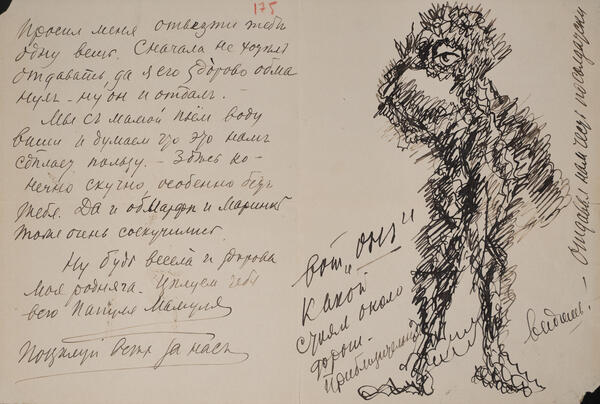 175
Просил меня отвезти тебе
одну вещь. Сначала не хотел
отдавать да я его здорово обма
нул – ну он и отдал. –
Мы съ мамой пьём воду
виши и думаем что это намъ
сделает пользу. – Здесь ко-
нечно скучно, особенно безъ
тебя. Да и об Марфи и Маринке
тоже очень соскучились
Ну будь весела и здорова
моя родняга. Целуем тебя
твои Папуля Мамуля
Поцелуй всех за насъ
вот онъ и
какой
стоял около
дорог.
Приблизительно
видишь! –
Отдавал нам честь по солдатски